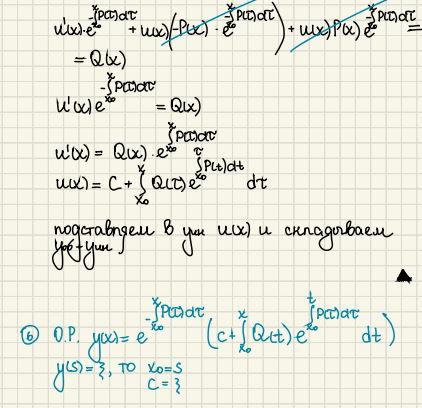 u'(x)·e^{-∫_{x₀}^{x} P(τ)dτ} + u(x)(-P(x)·e^{-∫_{x₀}^{x} P(τ)dτ}) + u(x)P(x)e^{-∫_{x₀}^{x} P(τ)dτ} =
= Q(x)
u'(x)e^{-∫_{x₀}^{x} P(τ)dτ} = Q(x)
u'(x) = Q(x)·e^{∫_{x₀}^{x} P(τ)dτ}
u(x) = C + ∫_{x₀}^{x} Q(τ)e^{∫_{x₀}^{τ} P(t)dt} dτ
подставляем в yчн u(x) и складываем
▲
⑥ О.Р. y(x) = e^{-∫_{x₀}^{x} P(τ)dτ} (c+∫_{x₀}^{x} Q(t) e^{∫_{x₀}^{t} P(τ)dτ} dt)
y(s) = ξ, то x₀=s
c = ξ